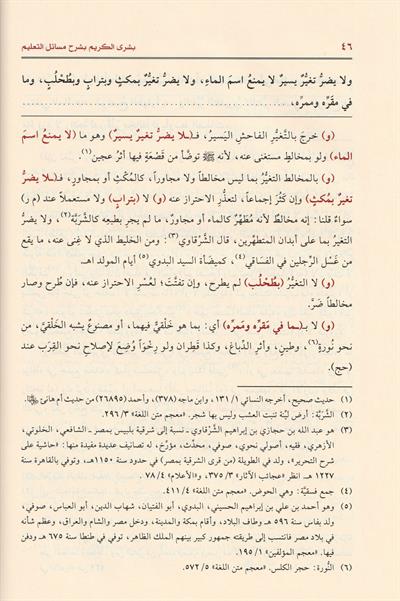 ٤٦ بشرى الكريم بشرح مسائل التعليم
ولا يضرُّ تغيُّرٌ يسيرٌ لا يمنعُ اسمَ الماءِ، ولا يضرُّ تغيُّرٌ بمكثٍ وبترابٍ وبطُحْلُبٍ، وما
في مقَرِّه وممرِّه،
(و) خرجَ بالتَّغيُّرِ الفاحشِ اليَسيرُ، فـ(ـلا يضرُّ تغيرٌ يسيرٌ) وهو ما (لا يمنعُ اسمَ
الماء) ولو بمخالطٍ مستغنى عنه، لأنه ﷺ توضَّأ من قَصْعَةٍ فيها أثرُ عجين(١).
(و) بالمخالط التغيُّر بما ليس مخالطاً ولا مجاوراً، كالمُكْثِ أو بمجاورٍ، فـ(ـلا يضرُّ
تغيرٌ بمُكثٍ) وإن كَثُرَ إجماعاً، لتعذُّرِ الاحترازِ عنه (و) لا (بترابٍ) ولا مستعملاً عند (م ر)
سواءٌ قلنا: إنه مخالطٌ لأنه مُطهِّرٌ كالماء أو مجاورٌ، ما لم يجرِ بطبعِه كالشَّرَبَّة(٢)، ولا يضرُّ
التغيرُ بما على أبدانِ المتطهِّرين، قال الشَّرْقاوي(٣): ومن الخليط الذي لا غنى عنه، ما يقع
من غَسْل الرِّجلين في الفساقي(٤)، كميضأة السيد البدوي(٥) أيام المولد اهـ.
(و) لا التغيُّرُ (بطُحْلُبٍ) لم يطرح، وإن تفتَّتَ؛ لعُسْرِ الاحترازِ عنه، فإن طُرِح وصار
مخالطاً ضَرَّ.
(و) لا بـ(ـما في مَقَرِّه ومَمَرِّه) أي: بما هو خَلْقيٌّ فيهما، أو مصنوعٌ يشبه الخَلْقيَّ، من
نحو نُورةٍ(٦)، وطينٍ، وأثرِ الدِّباغ، وكذا قَطِران ولو رِخْواً وُضِعَ لإصلاحِ نحو القِرَب عند
(حج).
(١) حديث صحيح، أخرجه النسائي ١/ ١٣١، وابن ماجه (٣٧٨)، وأحمد (٢٦٨٩٥) من حديث أم هانئ
(٢) الشَّرَبَّة: أرض ليِّنة تنبت العشب وليس بها شجر. «معجم متن اللغة» ٣/ ٢٩٦.
(٣) هو عبد الله بن حجازي بن إبراهيم الشَّرْقاوي ـ نسبة إلى شرقية بلبيس بمصر ـ الشافعي، الخلوتي،
الأزهري، فقيه، أصولي نحوي، صوفي، محدّث، مؤرِّخ، له تصانيف عديدة مفيدة منها: «حاشية على
شرح التحرير»، ولد في الطويلة (من قرى الشرقية بمصر) في حدود سنة ١١٥٠هـ، وتوفي بالقاهرة سنة
١٢٢٧ هـ. انظر «عجائب الآثار» ٣/ ٣٧٥، «الأعلام» ٤/ ٧٨.
(٤) جمع فسقيَّة: وهي الحوض. «معجم متن اللغة» ٤/ ٤١١.
(٥) وهو أحمد بن علي بن إبراهيم الحسيني، البدوي، أبو الفتيان، شهاب الدين، أبو العباس، صوفي،
ولد بفاس سنة ٥٩٦ هـ وطاف البلاد، وأقام بمكة والمدينة، ودخل مصر والشام والعراق، وعظم شأنه
في بلاد مصر فانتسب إلى طريقته جمهور كبير بينهم الملك الظاهر، توفي في طنطا سنة ٦٧٥ هـ ودفن
فيها. «معجم المؤلفين» ١/ ١٩٥.
(٦) النُّورة: حجر الكلس. «معجم متن اللغة» ٥/ ٥٧٢.